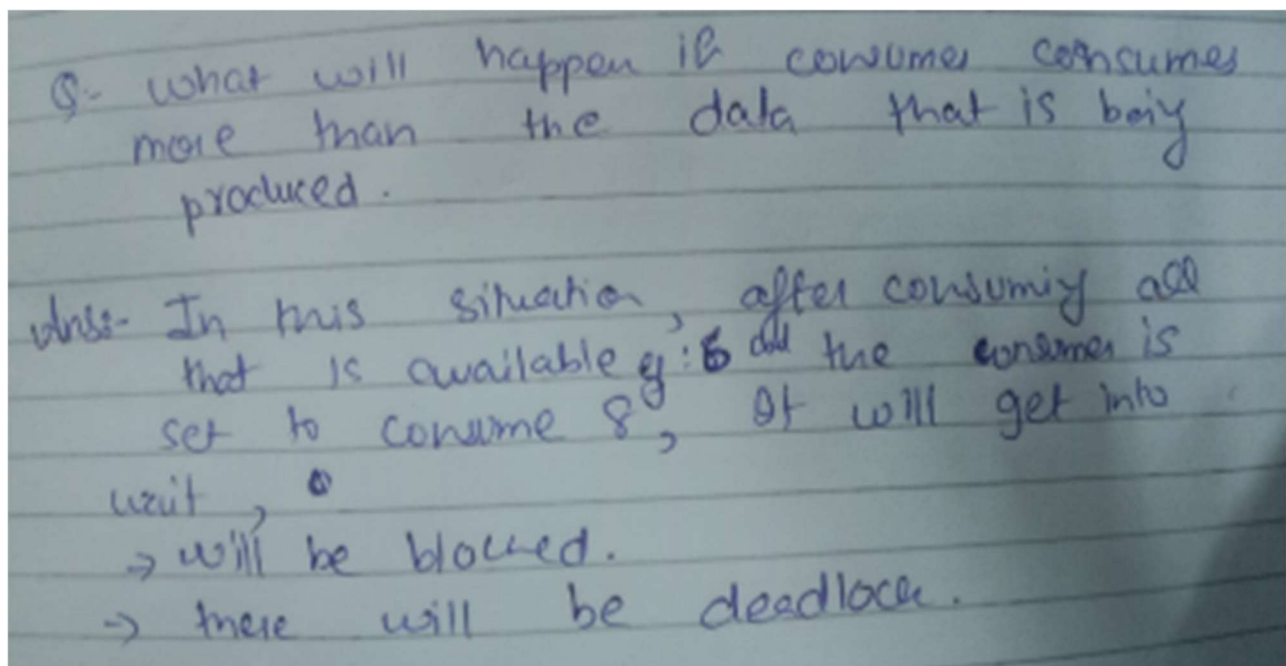 Q:- what will happen if consumer consumes
more than the data that is being
produced.
Ans:- In this situation, after consuming all
that is available eg: 5 the consumer is
set to consume 8, It will get into
wait,
→ will be blocked.
→ there will be deadlock.